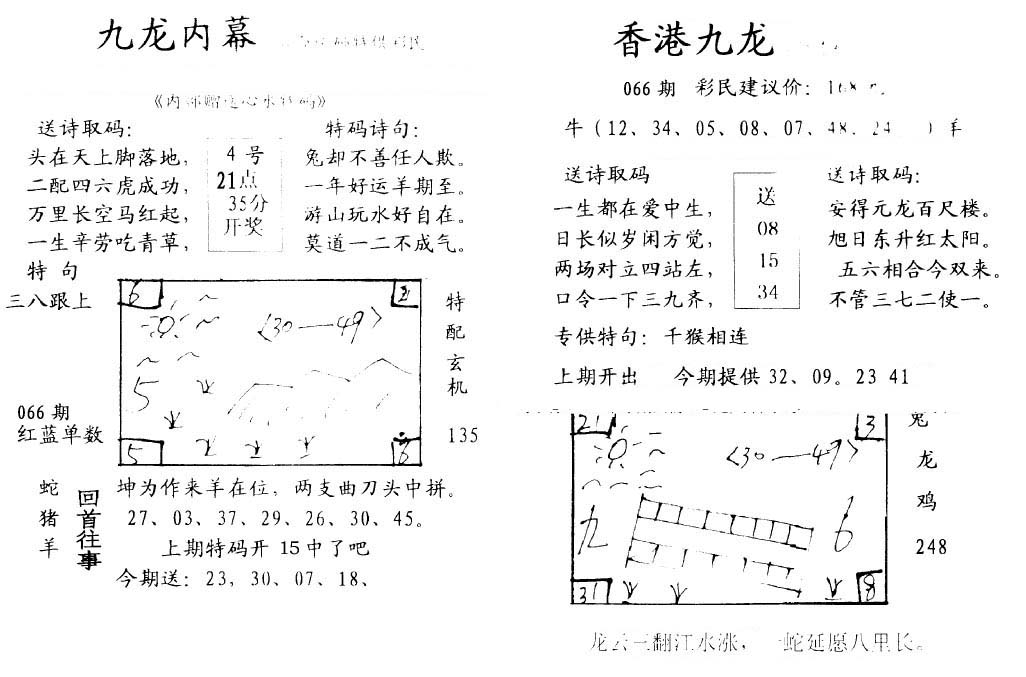 九龙内幕
《内部赠送心水特码》
送诗取码：
头在天上脚落地，
二配四六虎成功，
万里长空马红起，
一生辛劳吃青草，
4号
21点
35分
开奖
特码诗句：
兔却不善任人欺。
一年好运羊期至。
游山玩水好自在。
莫道一二不成气。
特 句
三八跟上
066期
红蓝单数
6
2
〈30——49〉
5
5
8
特配玄机
135
蛇
猪
羊
回首往事
坤为作来羊在位，两支曲刀头中拼。
27、03、37、29、26、30、45。
上期特码开 15 中了吧
今期送：23，30、07、18、
香港九龙
066 期 彩民建议价：168
牛（12、34、05、08、07、48、24 ）羊
送诗取码
一生都在爱中生，
日长似岁闲方觉，
两场对立四站左，
口令一下三九齐，
送
08
15
34
送诗取码：
安得元龙百尺楼。
旭日东升红太阳。
五六相合今双来。
不管三七二使一。
专供特句：千猴相连
上期开出 今期提供 32、09。23 41
21
3
〈30——49〉
九
6
31
8
兔
龙
鸡
248
龙云三翻江水涨，一蛇延愿八里长。